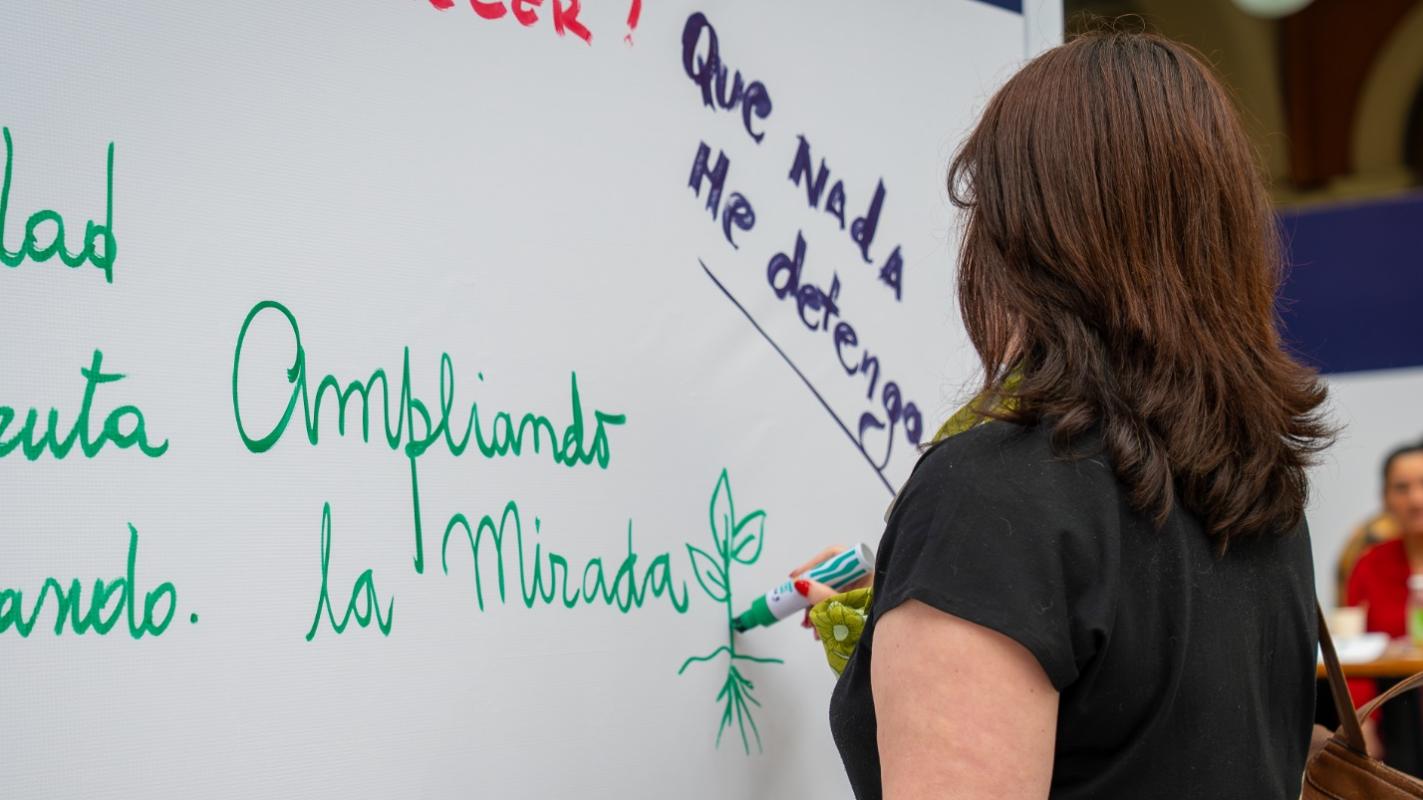 CER!
Que NAdA
Me detenga
lad
uta Ampliando
ando. la Mirada